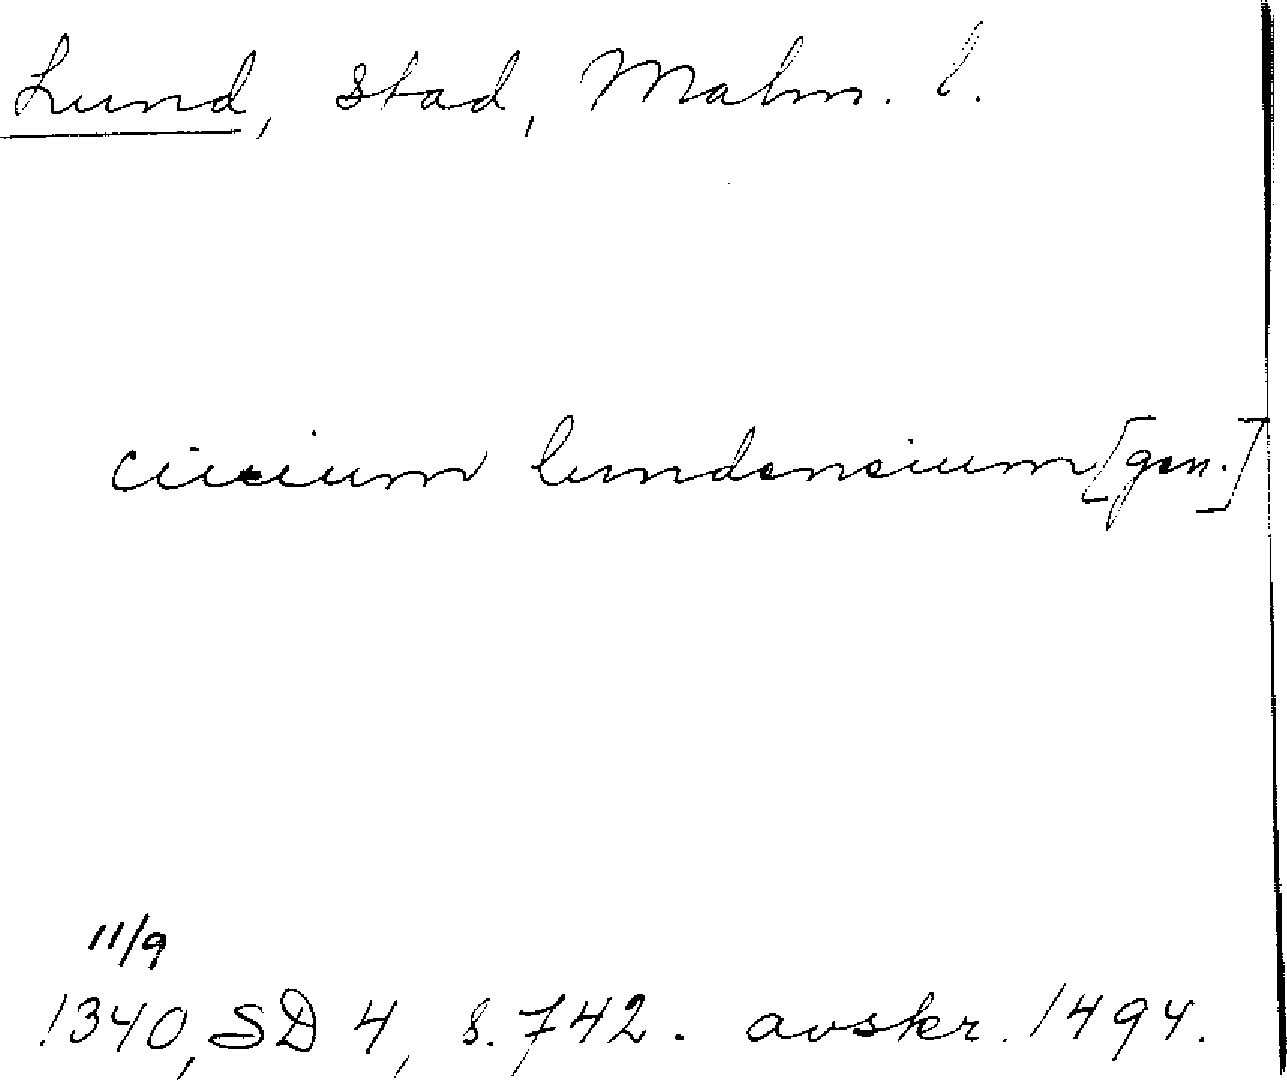 Lund, stad, Malm. l.
ciuium lundensium [gen.]
11/9
1340, SD 4, s. 742. avskr. 1494.